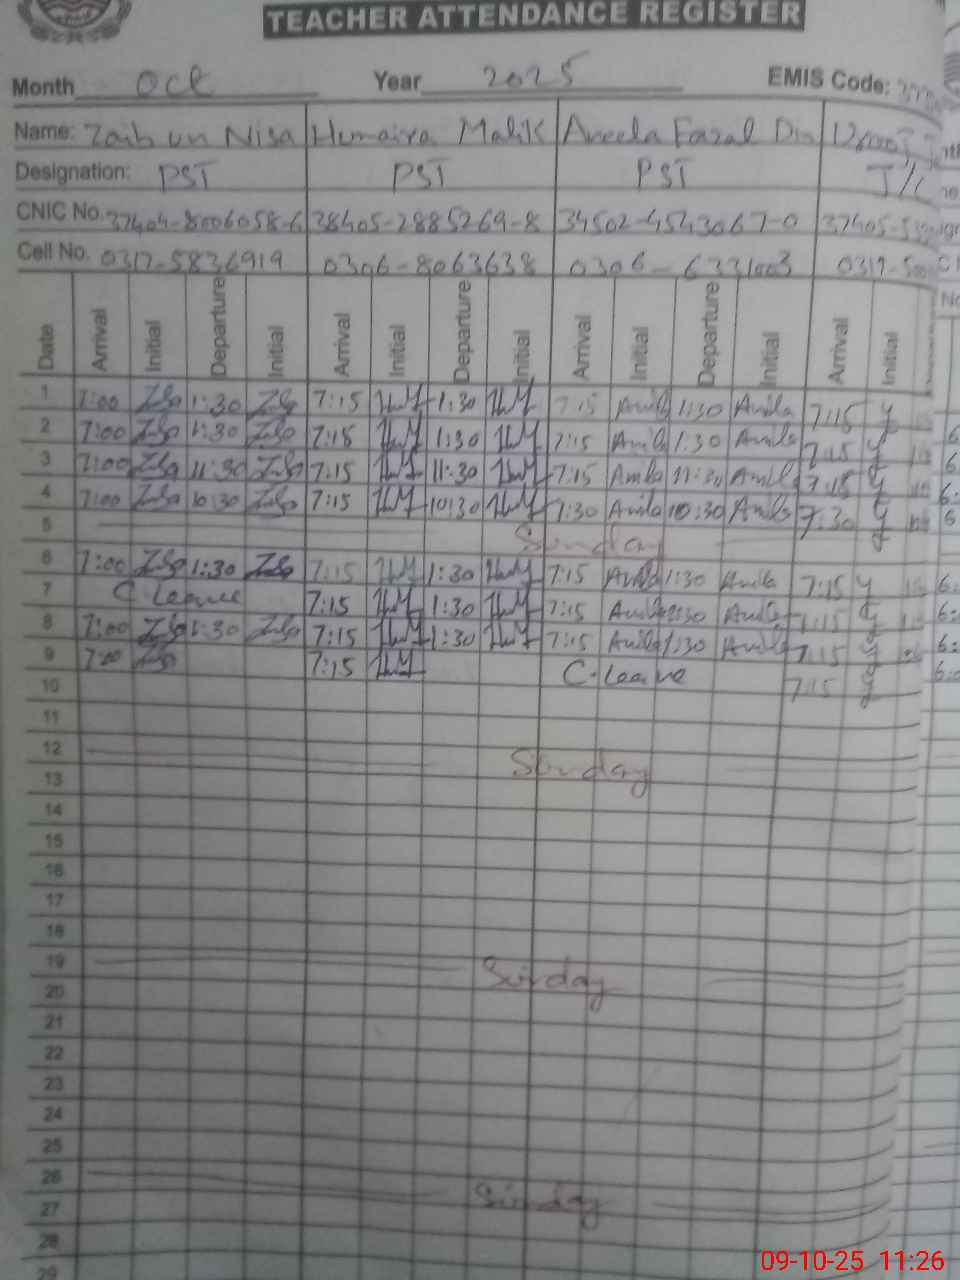 TEACHER ATTENDANCE REGISTER
Month Oct Year 2025 EMIS Code:
Name: Zaib un Nisa Humaira Malik Aneela Fazal Din
Designation: PST PST PST
CNIC No. 37404-8006058-6 38405-2885269-8 34502-4543067-0 37405-
Cell No. 0317-5836919 0306-8063638 0306-6331003 0317-
Date Arrival Initial Departure Initial Arrival Initial Departure Initial Arrival Initial Departure Initial Arrival Initial
1 7:00 1:30 7:15 HM 1:30 HM 7:15 Anila 1:30 Anila 7:15 y
2 7:00 1:30 7:15 HM 1:30 HM 7:15 Anila 1:30 Anila 7:15 y
3 7:00 11:30 7:15 HM 11:30 HM 7:15 Anila 11:30 Anila 7:15 y
4 7:00 10:30 7:15 HM 10:30 HM 7:30 Anila 10:30 Anila 7:30 y
5 Sunday
6 7:00 1:30 7:15 HM 1:30 HM 7:15 Anila 1:30 Anila 7:15 y
7 C Leave 7:15 HM 1:30 HM 7:15 Anila 1:30 Anila 7:15 y
8 7:00 1:30 7:15 HM 1:30 HM 7:15 Anila 1:30 Anila 7:15 y
9 7:00 7:15 HM C-Leave 7:15 y
10
11
12 Sunday
13
14
15
16
17
18
19 Sunday
20
21
22
23
24
25
26 Sunday
27
28
29
09-10-25 11:26